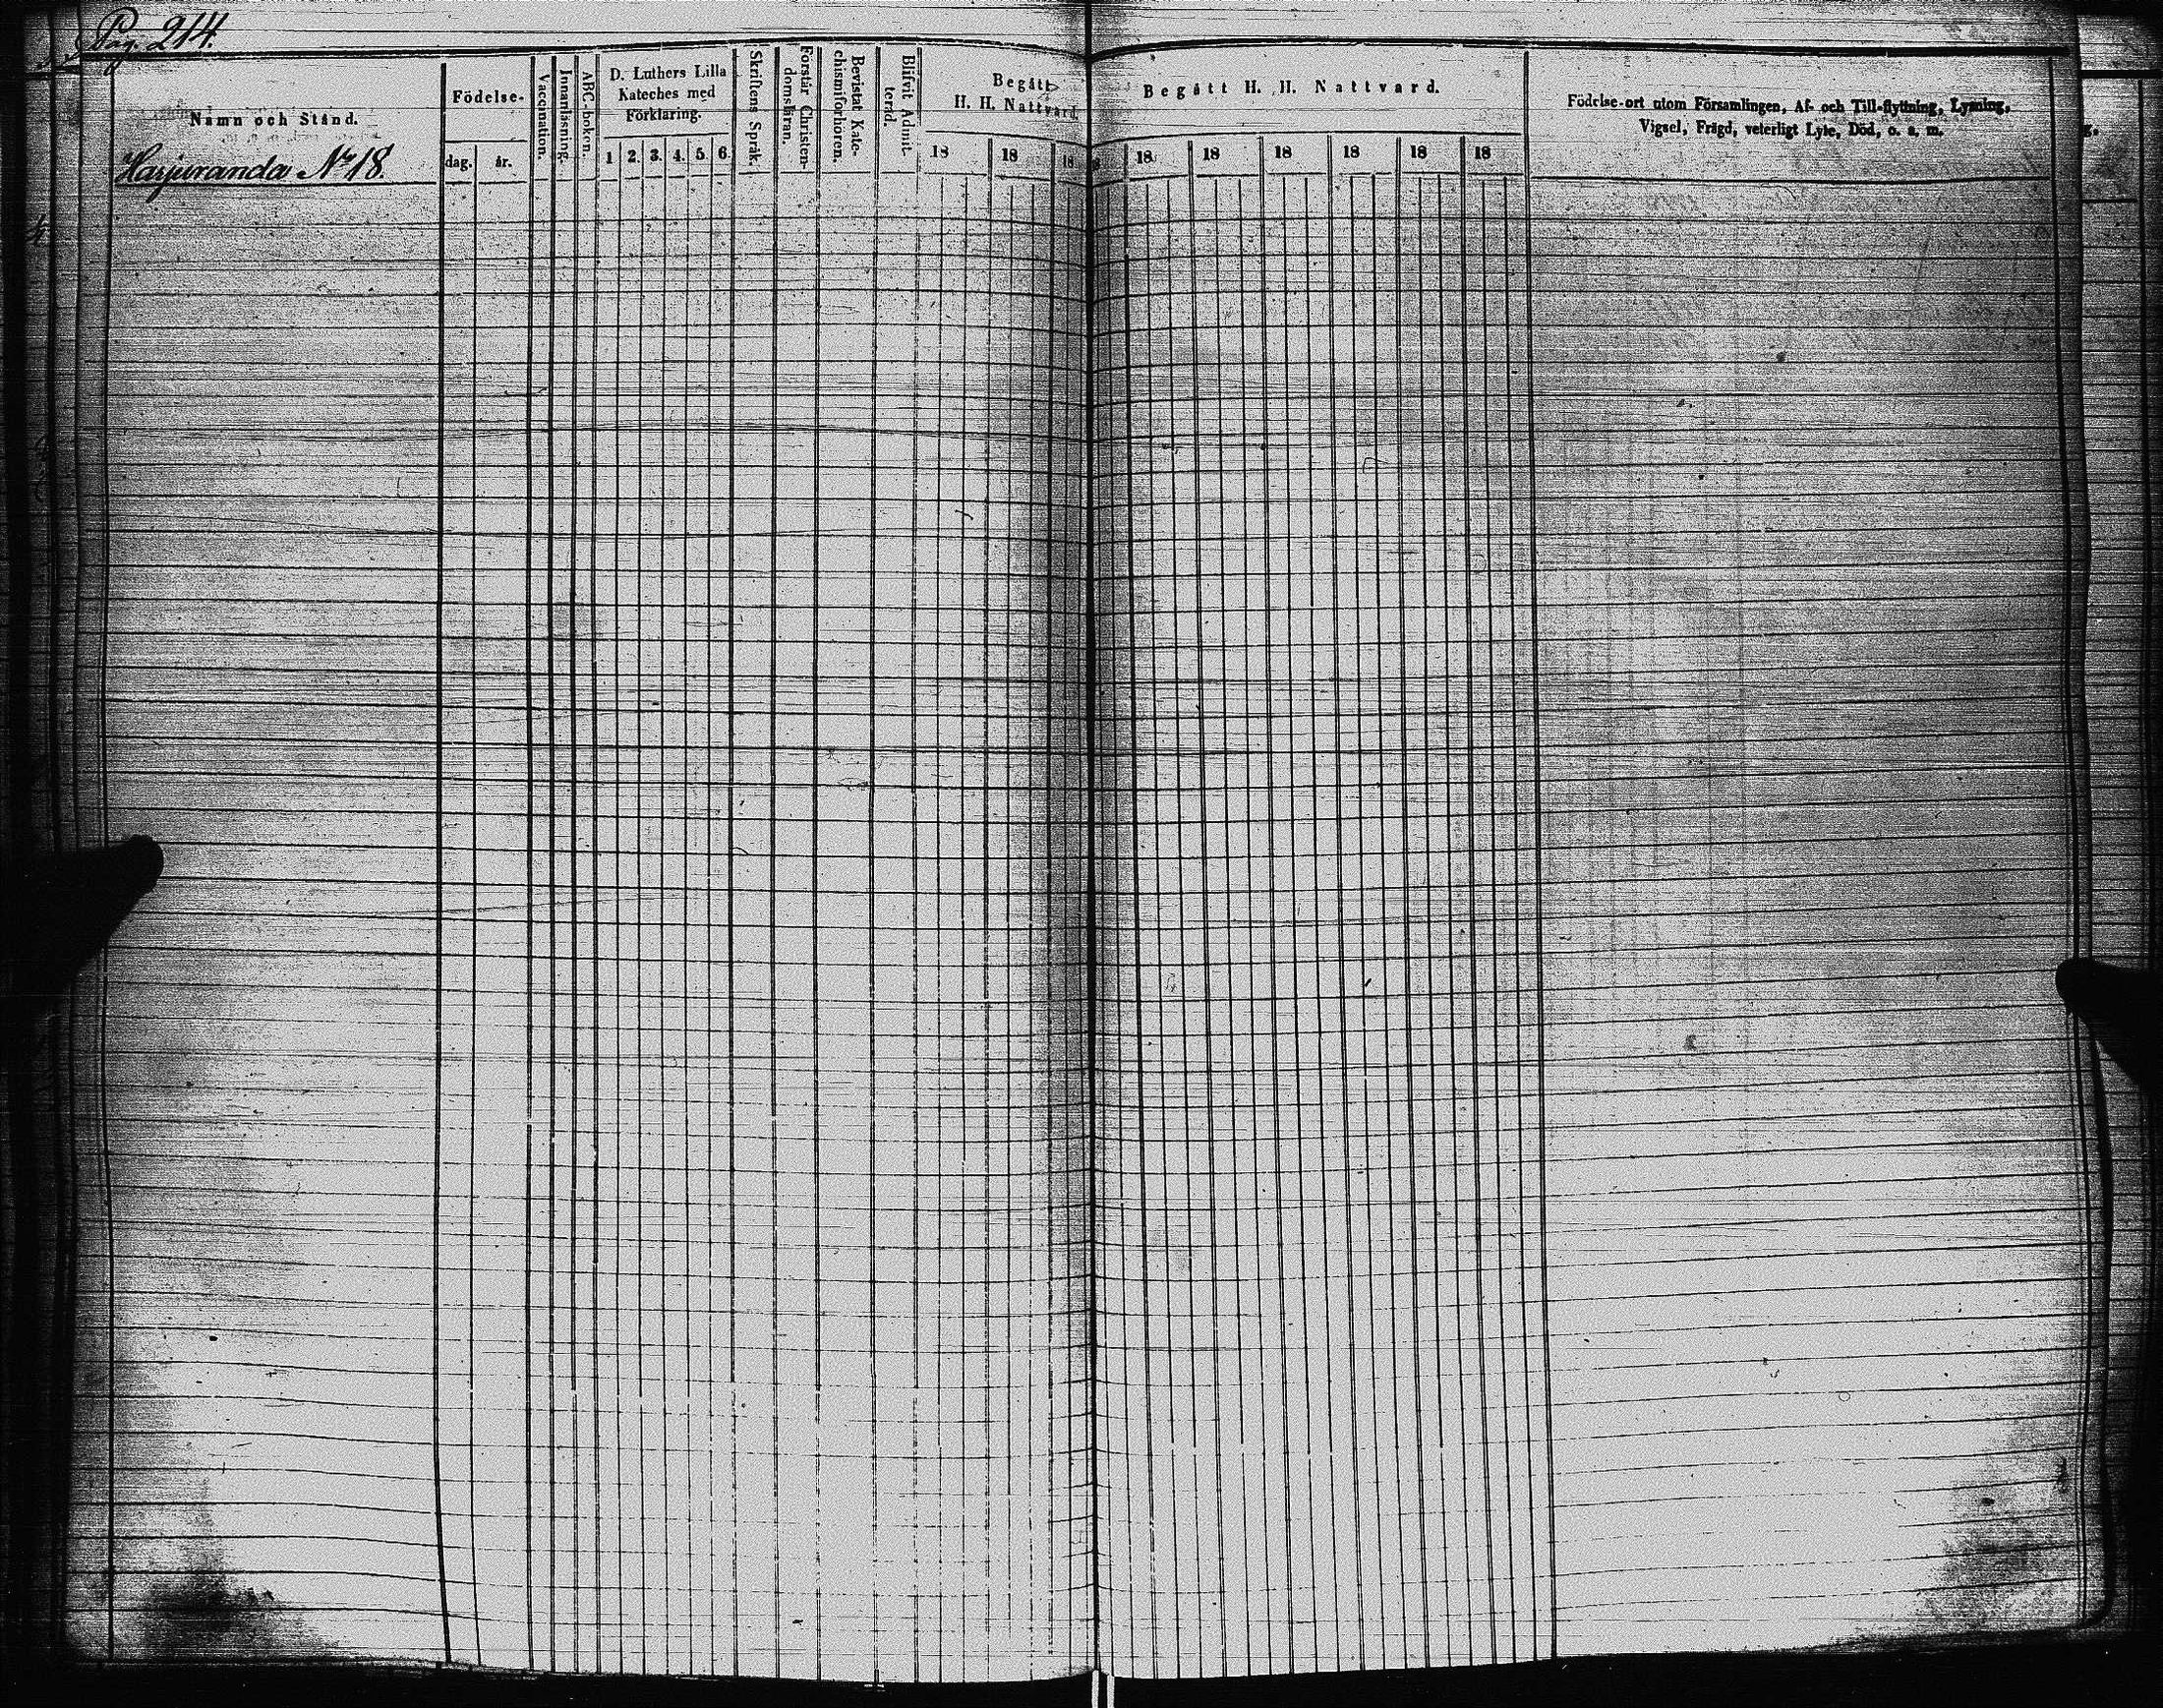 Pag. 214.
Namn och Stånd.
Harjuranda No 18.
Födelse-
dag. år.
Vaccination.
Innanläsning.
ABC-boken.
D. Luthers Lilla
Kateches med
Förklaring.
1 2. 3. 4. 5 6
Skriftens Språk.
Förstår Christen-
domsläran.
Bevistat Kate-
chismiförhören.
Blifvit Admit-
terad.
Begått
H. H. Nattvard.
18 18 18
Begått H. H. Nattvard.
18 18 18 18 18 18
Födelse-ort utom Församlingen, Af- och Till-flyttning, Lysning,
Vigsel, Frägd, veterligt Lyte, Död, o. s. m.